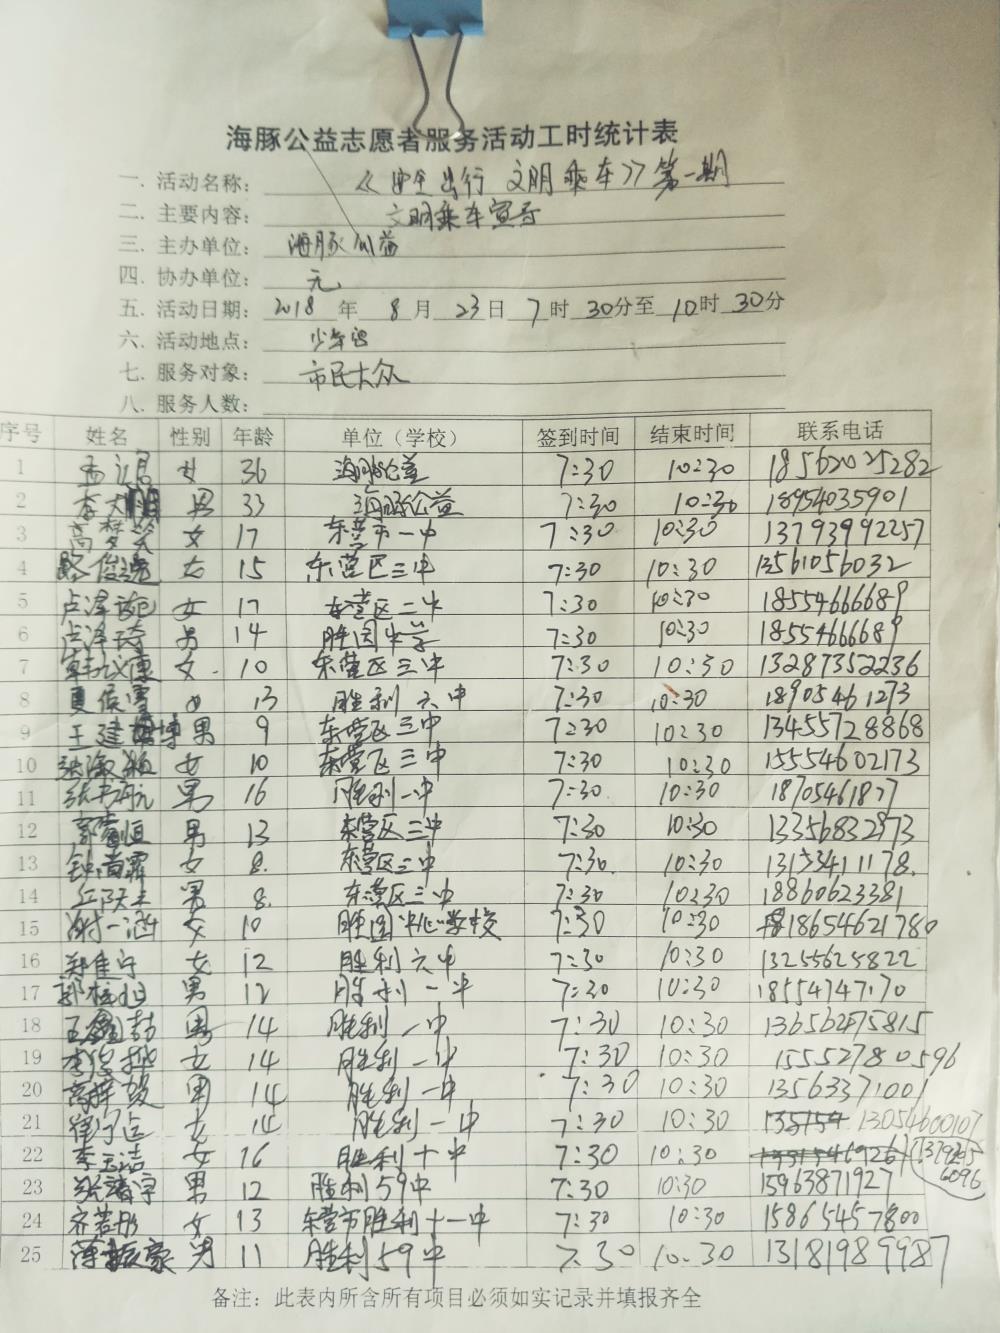 海豚公益志愿者服务活动工时统计表
一. 活动名称: 《安全出行 文明乘车》第一期
二. 主要内容: 文明乘车宣导
三. 主办单位: 海豚公益
四. 协办单位: 元
五. 活动日期: 2018 年 8 月 23 日 7 时 30分至 10时 30分
六. 活动地点: 少年宫
七. 服务对象: 市民大众
八. 服务人数:
序号 姓名 性别 年龄 单位(学校) 签到时间 结束时间 联系电话
1 女 36 海豚公益 7:30 10:30 18562025282
2 李大鹏 男 33 海豚公益 7:30 10:30 18954035901
3 高梦笑 女 17 东营市一中 7:30 10:30 13793992257
4 路俊逸 女 15 东营区三中 7:30 10:30 13561056032
5 卢泽 女 17 东营区二中 7:30 10:30 18554666689
6 卢泽琦 男 14 胜园中学 7:30 10:30 18554666689
7 女 10 东营区三中 7:30 10:30 13287352236
8 夏侯雪 13 胜利六中 7:30 10:30 18905461273
9 王建博 男 9 东营区三中 7:30 10:30 13455728868
10 张淑 女 10 东营区三中 7:30 10:30 15554602173
11 张书航 男 16 胜利一中 7:30 10:30 18705461877
12 恒 男 13 东营区三中 7:30 10:30 13356832973
13 钟霏 女 8. 东营区三中 7:30. 10:30 13153411178.
14 男 8. 东营区三中 7:30 10:30 18860623381
15 谢一涵 女 10 胜园中心学校 7:30 10:30 18654621780
16 郑佳宁 女 12 胜利六中 7:30 10:30 13255625822
17 郭 男 12 胜利一中 7:30 10:30 18554747170
18 王 男 14 胜利一中 7:30 10:30 13656475815
19 李 女 14 胜利一中 7:30 10:30 15552780596
20 高梓 男 14 胜利一中 7:30 10:30 13563371001
21 崔 女 14 胜利一中 7:30 10:30 135154 13054600107
22 李玉洁 女 16 胜利十中 7:30 10:30 (13792156096
23 张 宇 男 12 胜利59中 7:30 10:30 15963871927
24 齐若彤 女 13 东营市胜利十一中 7:30 10:30 15865457800
25 薄振豪 男 11 胜利59中 7:30 10:30 13181989987
备注: 此表内所含所有项目必须如实记录并填报齐全